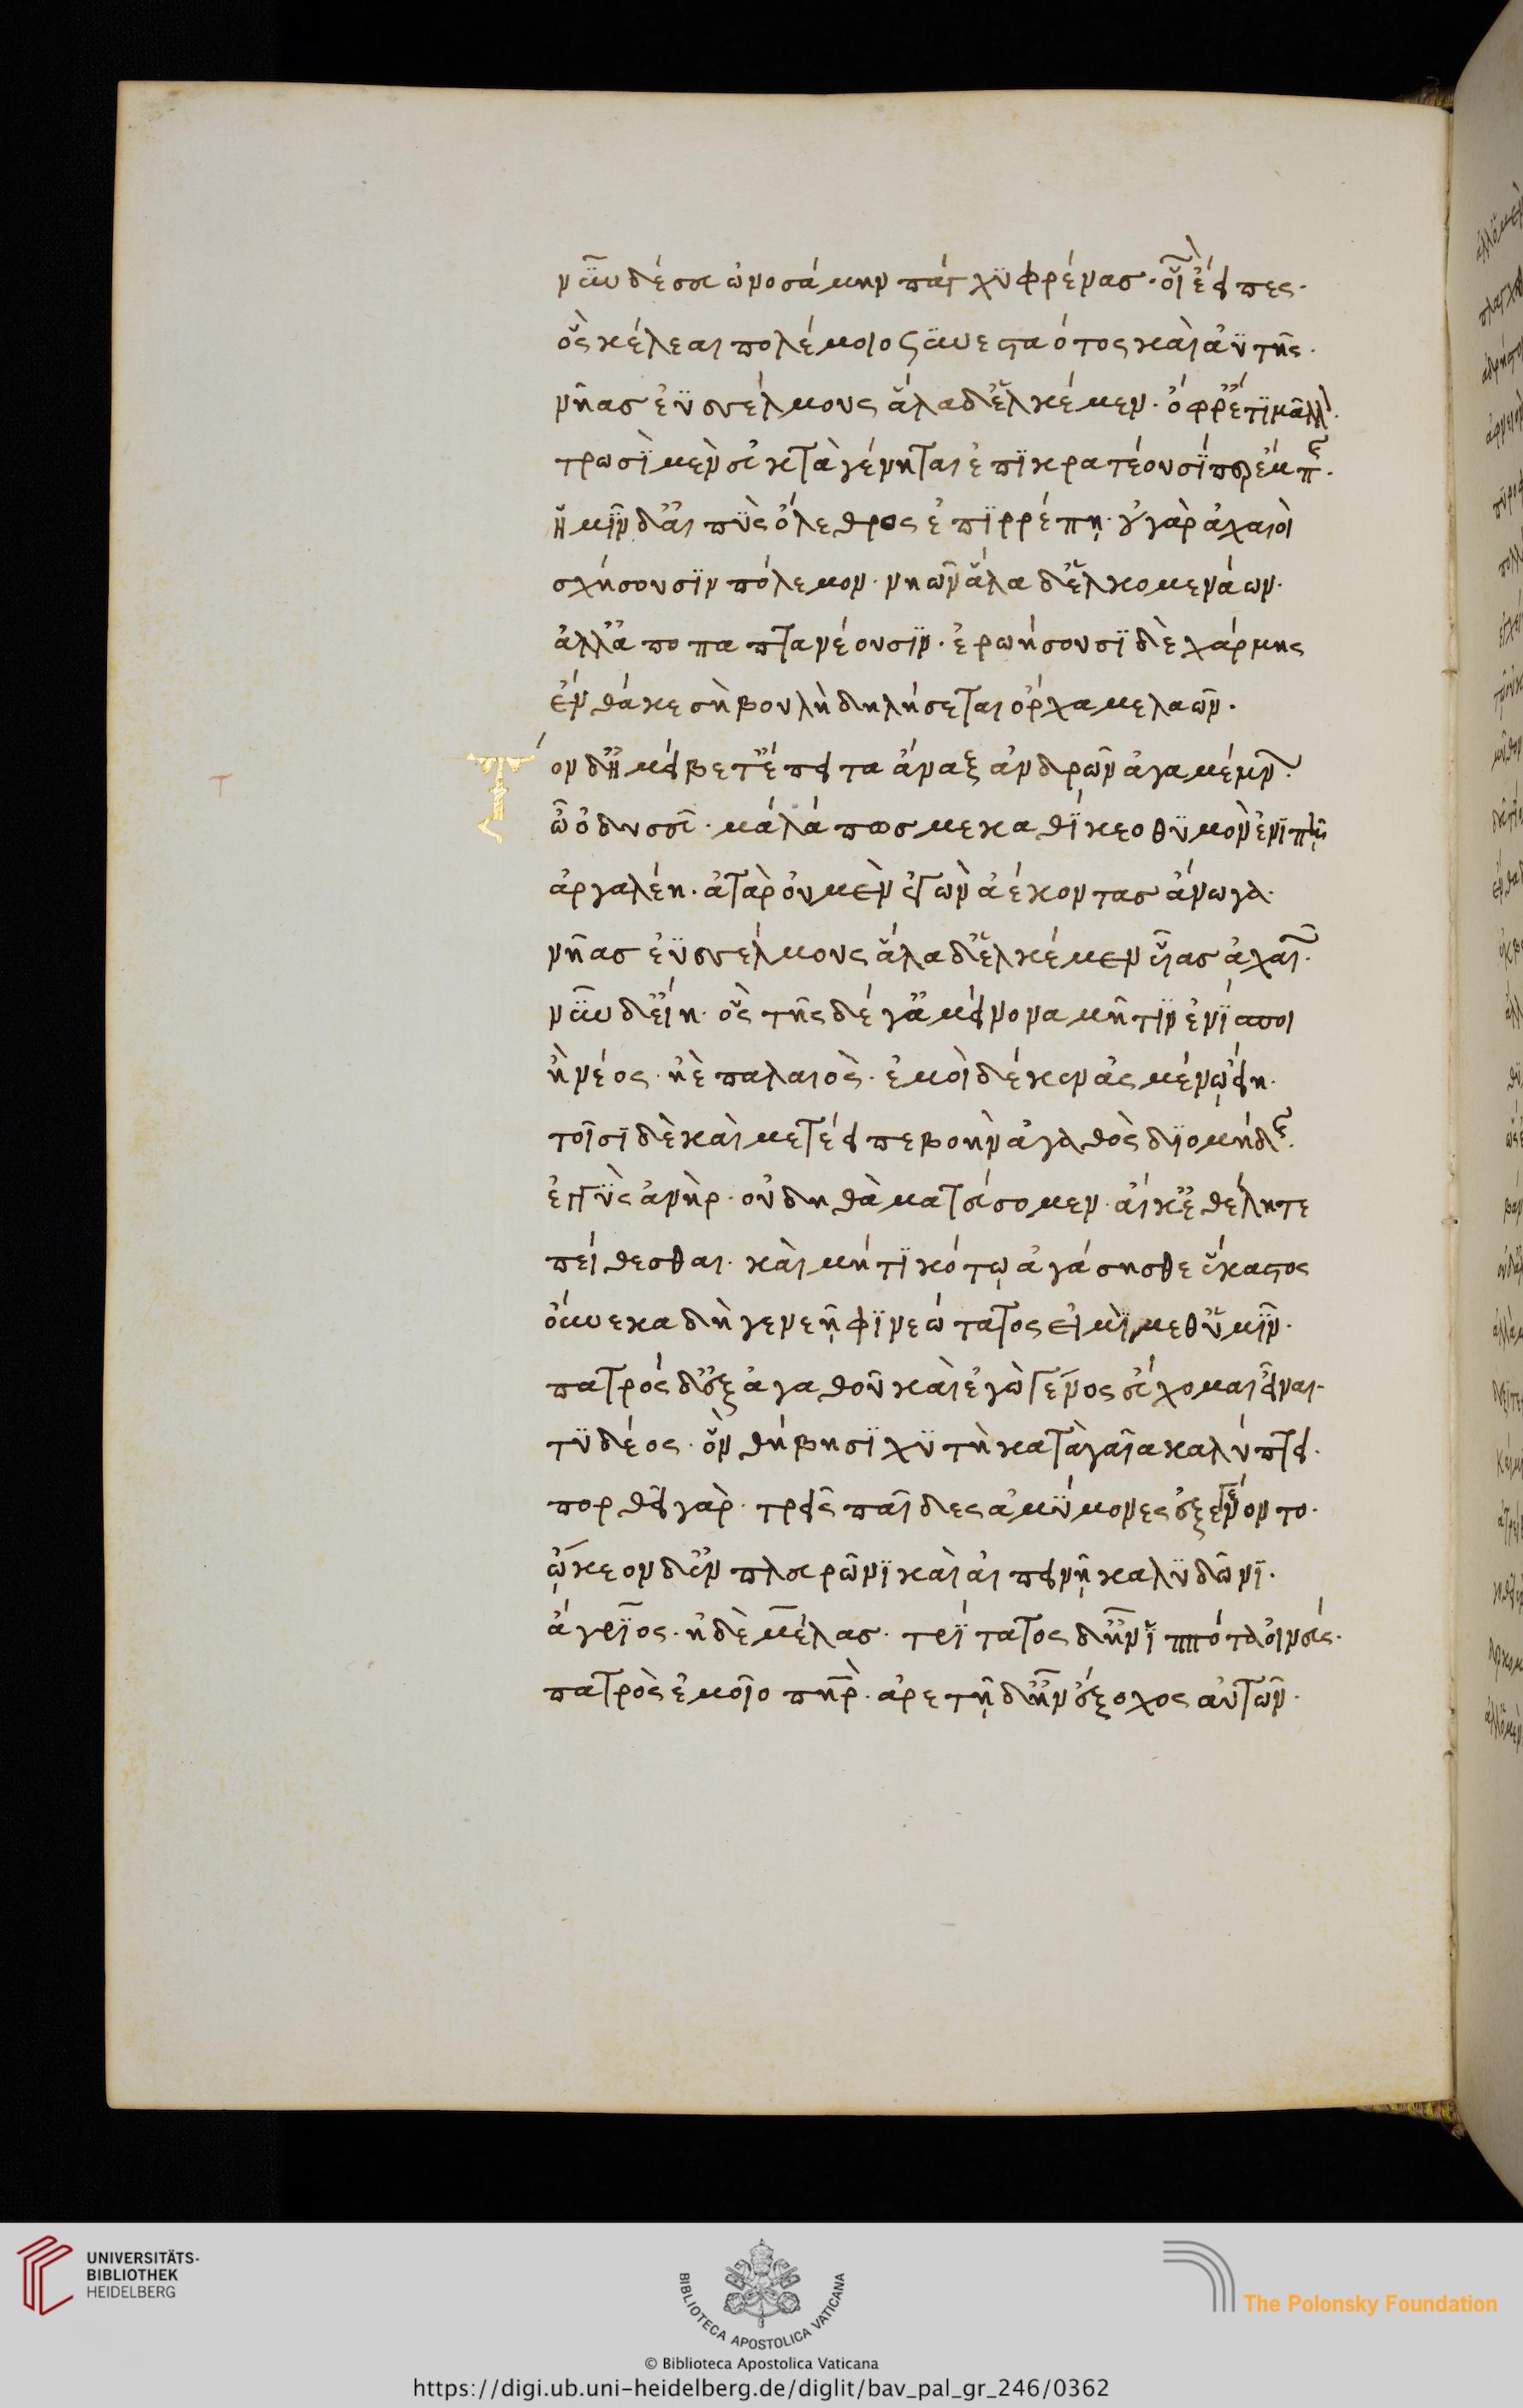 νῦν δέ σευ ὠνοσάμην πάγχϋ φρένας· οἷον ἔειπες·
ὃς κέλεαι πολέμοιο συνεσταότος καὶ ἀϋτῆς·
νῆας ἐϋσσέλμους ἅλαδ' ἑλκέμεν· ὄφρ' ἔτι μᾶλλον·
τρωσὶ μὲν εὐκτὰ γένηται ἐπικρατέουσί περ ἔμπης·
ἡμῖν δ' αἰπὺς ὄλεθρος ἐπιρρέπῃ· οὐ γὰρ ἀχαιοὶ
σχήσουσιν πόλεμον· νηῶν ἅλα δ' ἑλκομενάων·
ἀλλ' ἀποπαπτανέουσιν· ἐρωήσουσι δὲ χάρμης
ἔνθά κε σὴ βουλὴ δηλήσεται ὄρχαμε λαῶν·
Τὸν δ' ἠμείβετ' ἔπειτα ἄναξ ἀνδρῶν ἀγαμέμνων·
ὦ ὀδυσσεῦ· μάλά πως με καθίκεο θυμὸν ἐνιπῇ
ἀργαλέῃ· ἀτὰρ οὐ μὲν ἐγὼν ἀέκοντας ἄνωγα·
νῆας ἐϋσσέλμους ἅλαδ' ἑλκέμεν υἷας ἀχαιῶν·
νῦν δ' εἴη· ὃς τῆς δέ γ' ἀμείνονα μῆτιν ἐνίσποι
ἢ νέος· ἠὲ παλαιὸς· ἐμοὶ δέ κεν ἀσμένῳ εἴη·
τοῖσι δὲ καὶ μετέειπε βοὴν ἀγαθὸς διομήδης·
ἐγγὺς ἀνὴρ· οὐ δηθὰ ματεύσομεν· αἴ κ' ἐθέλητε
πείθεσθαι· καὶ μή τι κότῳ ἀγάσησθε ἕκαστος
οὕνεκα δὴ γενεῆφι νεώτατος εἰμὶ μεθ' ὑμῖν·
πατρὸς δ' ἐξ ἀγαθοῦ καὶ ἐγὼ γένος εὔχομαι εἶναι·
τυδέος· ὃν θήβησι χυτὴ κατὰ γαῖα καλύπτει·
πορθεῖ γὰρ· τρεῖς παῖδες ἀμύμονες ἐξεγένοντο·
ᾤκεον δ' ἐν πλευρῶνι καὶ αἰπεινῇ καλυδῶνι·
ἄγριος· ἠδὲ μέλας· τρίτατος δ' ἦν ἱππότα οἰνεύς·
πατρὸς ἐμοῖο πατήρ· ἀρετῇ δ' ἦν ἔξοχος αὐτῶν·
Τ
UNIVERSITÄTS-
BIBLIOTHEK
HEIDELBERG
BIBLIOTECA APOSTOLICA VATICANA
© Biblioteca Apostolica Vaticana
The Polonsky Foundation
https://digi.ub.uni-heidelberg.de/diglit/bav_pal_gr_246/0362